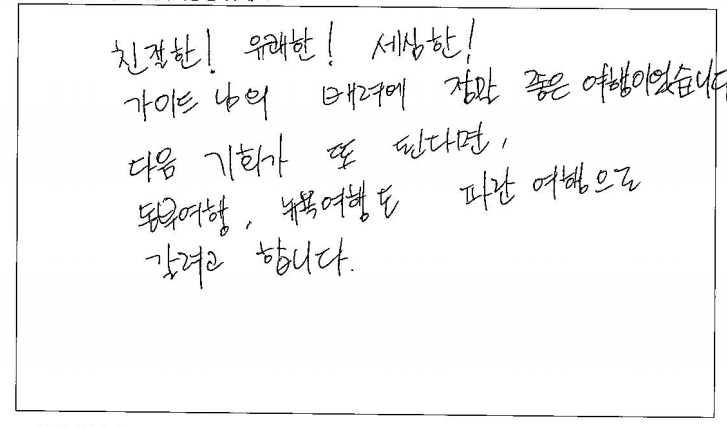 친절한! 유쾌한! 세심한!
가이드 님의 배려에 정말 좋은 여행이었습니다
다음 기회가 또 된다면,
동유여행, 뉴욕여행도 파란 여행으로
갈려고 합니다.